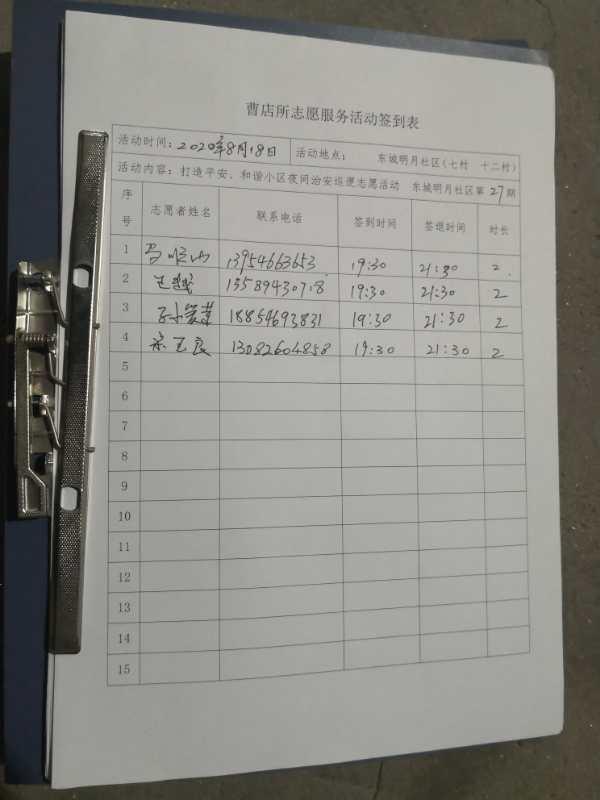 曹店所志愿服务活动签到表
活动时间：2020年8月18日 活动地点： 东城明月社区（七村 十二村）
活动内容：打造平安、和谐小区夜间治安巡逻志愿活动 东城明月社区第27期
序号 志愿者姓名 联系电话 签到时间 签退时间 时长
1 13954663653 19:30 21:30 2
2 19:30 21:30 2
3 18854693831 19:30 21:30 2
4 宋玉良 13082604858 19:30 21:30 2
5
6
7
8
9
10
11
12
13
14
15